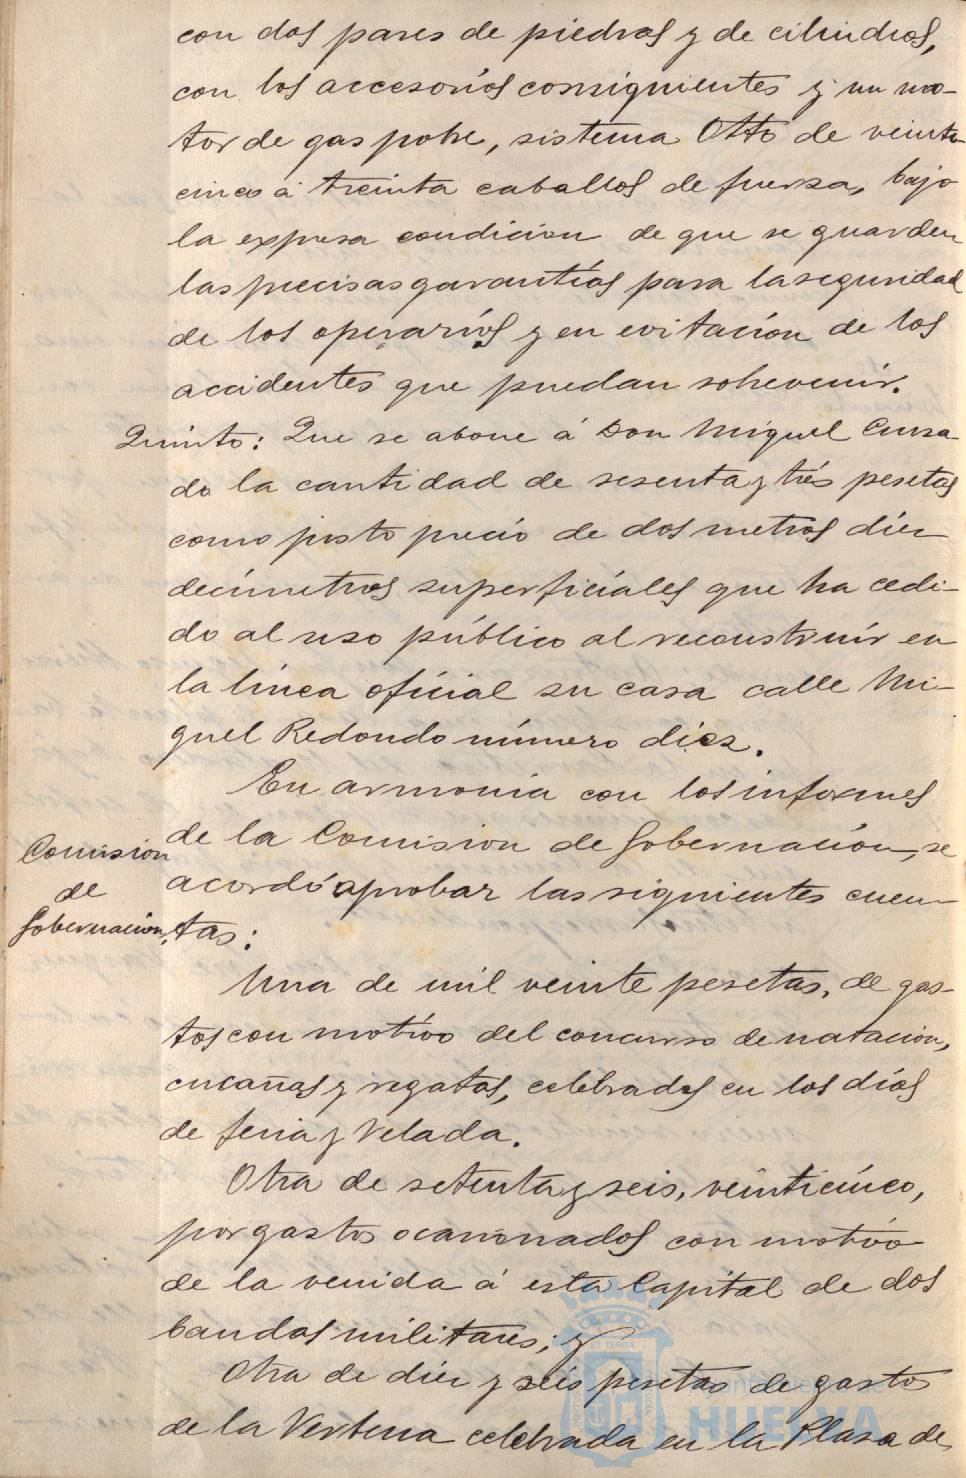 con dos pares de piedras y de cilindros,
con los accesorios consiguientes y un mo-
tor de gas pobre, sistema Otto de veinti-
cinco á treinta caballos de fuerza, bajo
la expresa condicion de que se guarden
las precisas garantías para la seguridad
de los operarios y en evitacion de los
accidentes que puedan sobrevenir.
Quinto: Que se abone á Don Miguel Cursa-
do la cantidad de sesenta y trés pesetas
como justo precio de dos metros diez
decímetros superficiales que ha cedi-
do al uso público al reconstruir en
la línea oficial su casa calle Mi-
guel Redondo número diez.
En armonia con los informes
Comision
de
Gobernación,
de la Comision de Gobernación, se
acordó aprobar las siguientes cuen-
tas:
Una de mil veinte pesetas, de gas-
tos con motivo del concurso de natacion,
cucañas y regatas, celebrados en los días
de feria y Velada.
Otra de setenta y seis, veinticinco,
por gastos ocasionados con motivo
de la venida á esta Capital de dos
bandas militares; y
Otra de diez y seis pesetas de gastos
de la Verbena celebrada en la Plaza de
HUELVA